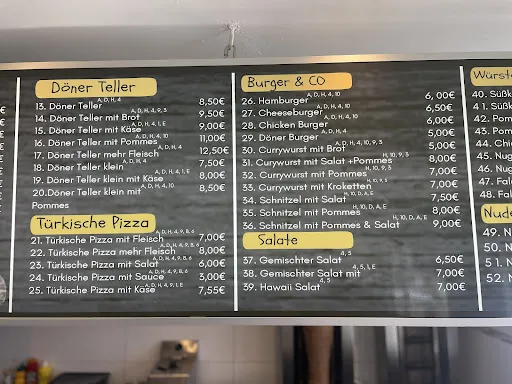 Döner Teller
13. Döner Teller A, D, H, 4 8,50€
14. Döner Teller mit Brot A, D, H, 4, 9, 3 9,50€
15. Döner Teller mit Käse A, D, H, 4, 1, E 9,00€
16. Döner Teller mit Pommes A, D, H, 4, 10 11,00€
17. Döner Teller mehr Fleisch A, D, H, 4 12,50€
18. Döner Teller klein A, D, H, 4 7,50€
19. Döner Teller klein mit Käse A, D, H, 4, 1, E 8,00€
20.Döner Teller klein mit A, D, H, 4, 10 8,50€
Pommes
Türkische Pizza
21. Türkische Pizza mit Fleisch A, D, H, 4, 9, 8, 6 7,00€
22. Türkische Pizza mehr Fleisch A, D, H, 4, 9, 8, 6 8,00€
23. Türkische Pizza mit Salat A, D, H, 4, 9, 8, 6 6,00€
24. Türkische Pizza mit Sauce A, D, H, 4, 9, 8, 6 3,00€
25. Türkische Pizza mit Käse A, D, H, 4, 9, 1, E 7,55€
Burger & CO
26. Hamburger A, D, H, 4, 10 6,00€
27. Cheeseburger A, D, H, 4, 10 6,50€
28. Chicken Burger A, D, H, 4, 10 6,00€
29. Döner Burger A, D, H, 4 5,00€
30. Currywurst mit Brot A, D, H, 4, 10, 9, 3 5,00€
31. Curywurst mit Salat +Pommes H, 10, 9, 3 8,00€
32. Currywurst mit Pommes H, 10, 9, 3 7,00€
33. Currywurst mit Kroketten H, 10, 9, 3 7,00€
34. Schnitzel mit Salat H, 10, D, A, E 7,50€
35. Schnitzel mit Pommes H, 10, D, A, E 8,00€
36. Schnitzel mit Pommes & Salat H, 10, D, A, E 9,00€
Salate
37. Gemischter Salat 6,50€
38. Gemischter Salat mit 4, 5, 1, E 7,00€
39. Hawaii Salat 4, 5 7,00€
Würst
40. Süßk
41. Süßk
42. Pom
43. Pom
44. Chi
45. Nug
46. Nug
47. Fal
48. Fal
Nude
49. N
50. N
51. N
52. N